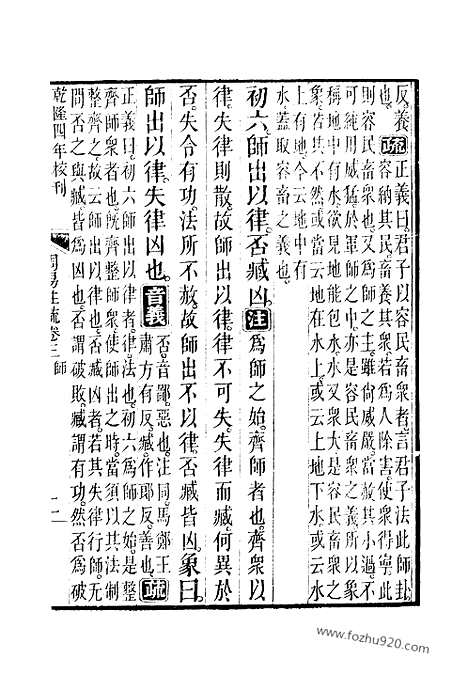 反養
也。疏正義曰君子以容民畜衆者言君子法此師卦
容納其民畜養其衆若爲人除害使衆得寧此
則容民畜衆也又爲師之主雖尚威嚴當赦其小過不
可純用威猛於軍師之中亦是容民畜衆之義所以象
稱地中有水欲見地能包水水又衆大是容民畜衆之
象若其不然或當云地在水上或云上地下水或云水
上有地今云地中有
水蓋取容畜之義也
初六師出以律否臧凶注爲師之始齊師者也齊衆以
律失律則散故師出以律律不可失失律而臧何異於
否失令有功法所不赦故師出不以律否臧皆凶象曰
師出以律失律凶也音義否音鄙惡也注同馬鄭王
肅方有反臧作郎反善也疏
正義曰初六師出以律者律法也初六爲師之始是整
齊師衆者也既齊整師衆使師出之時當須以其法制
整齊之故云師出以律也否臧凶者若其失律行師无
問否之與臧皆爲凶也否謂破敗臧謂有功然否爲破
乾隆四年校刊
周易注疏卷三 師
十二
www.fozhu920.com